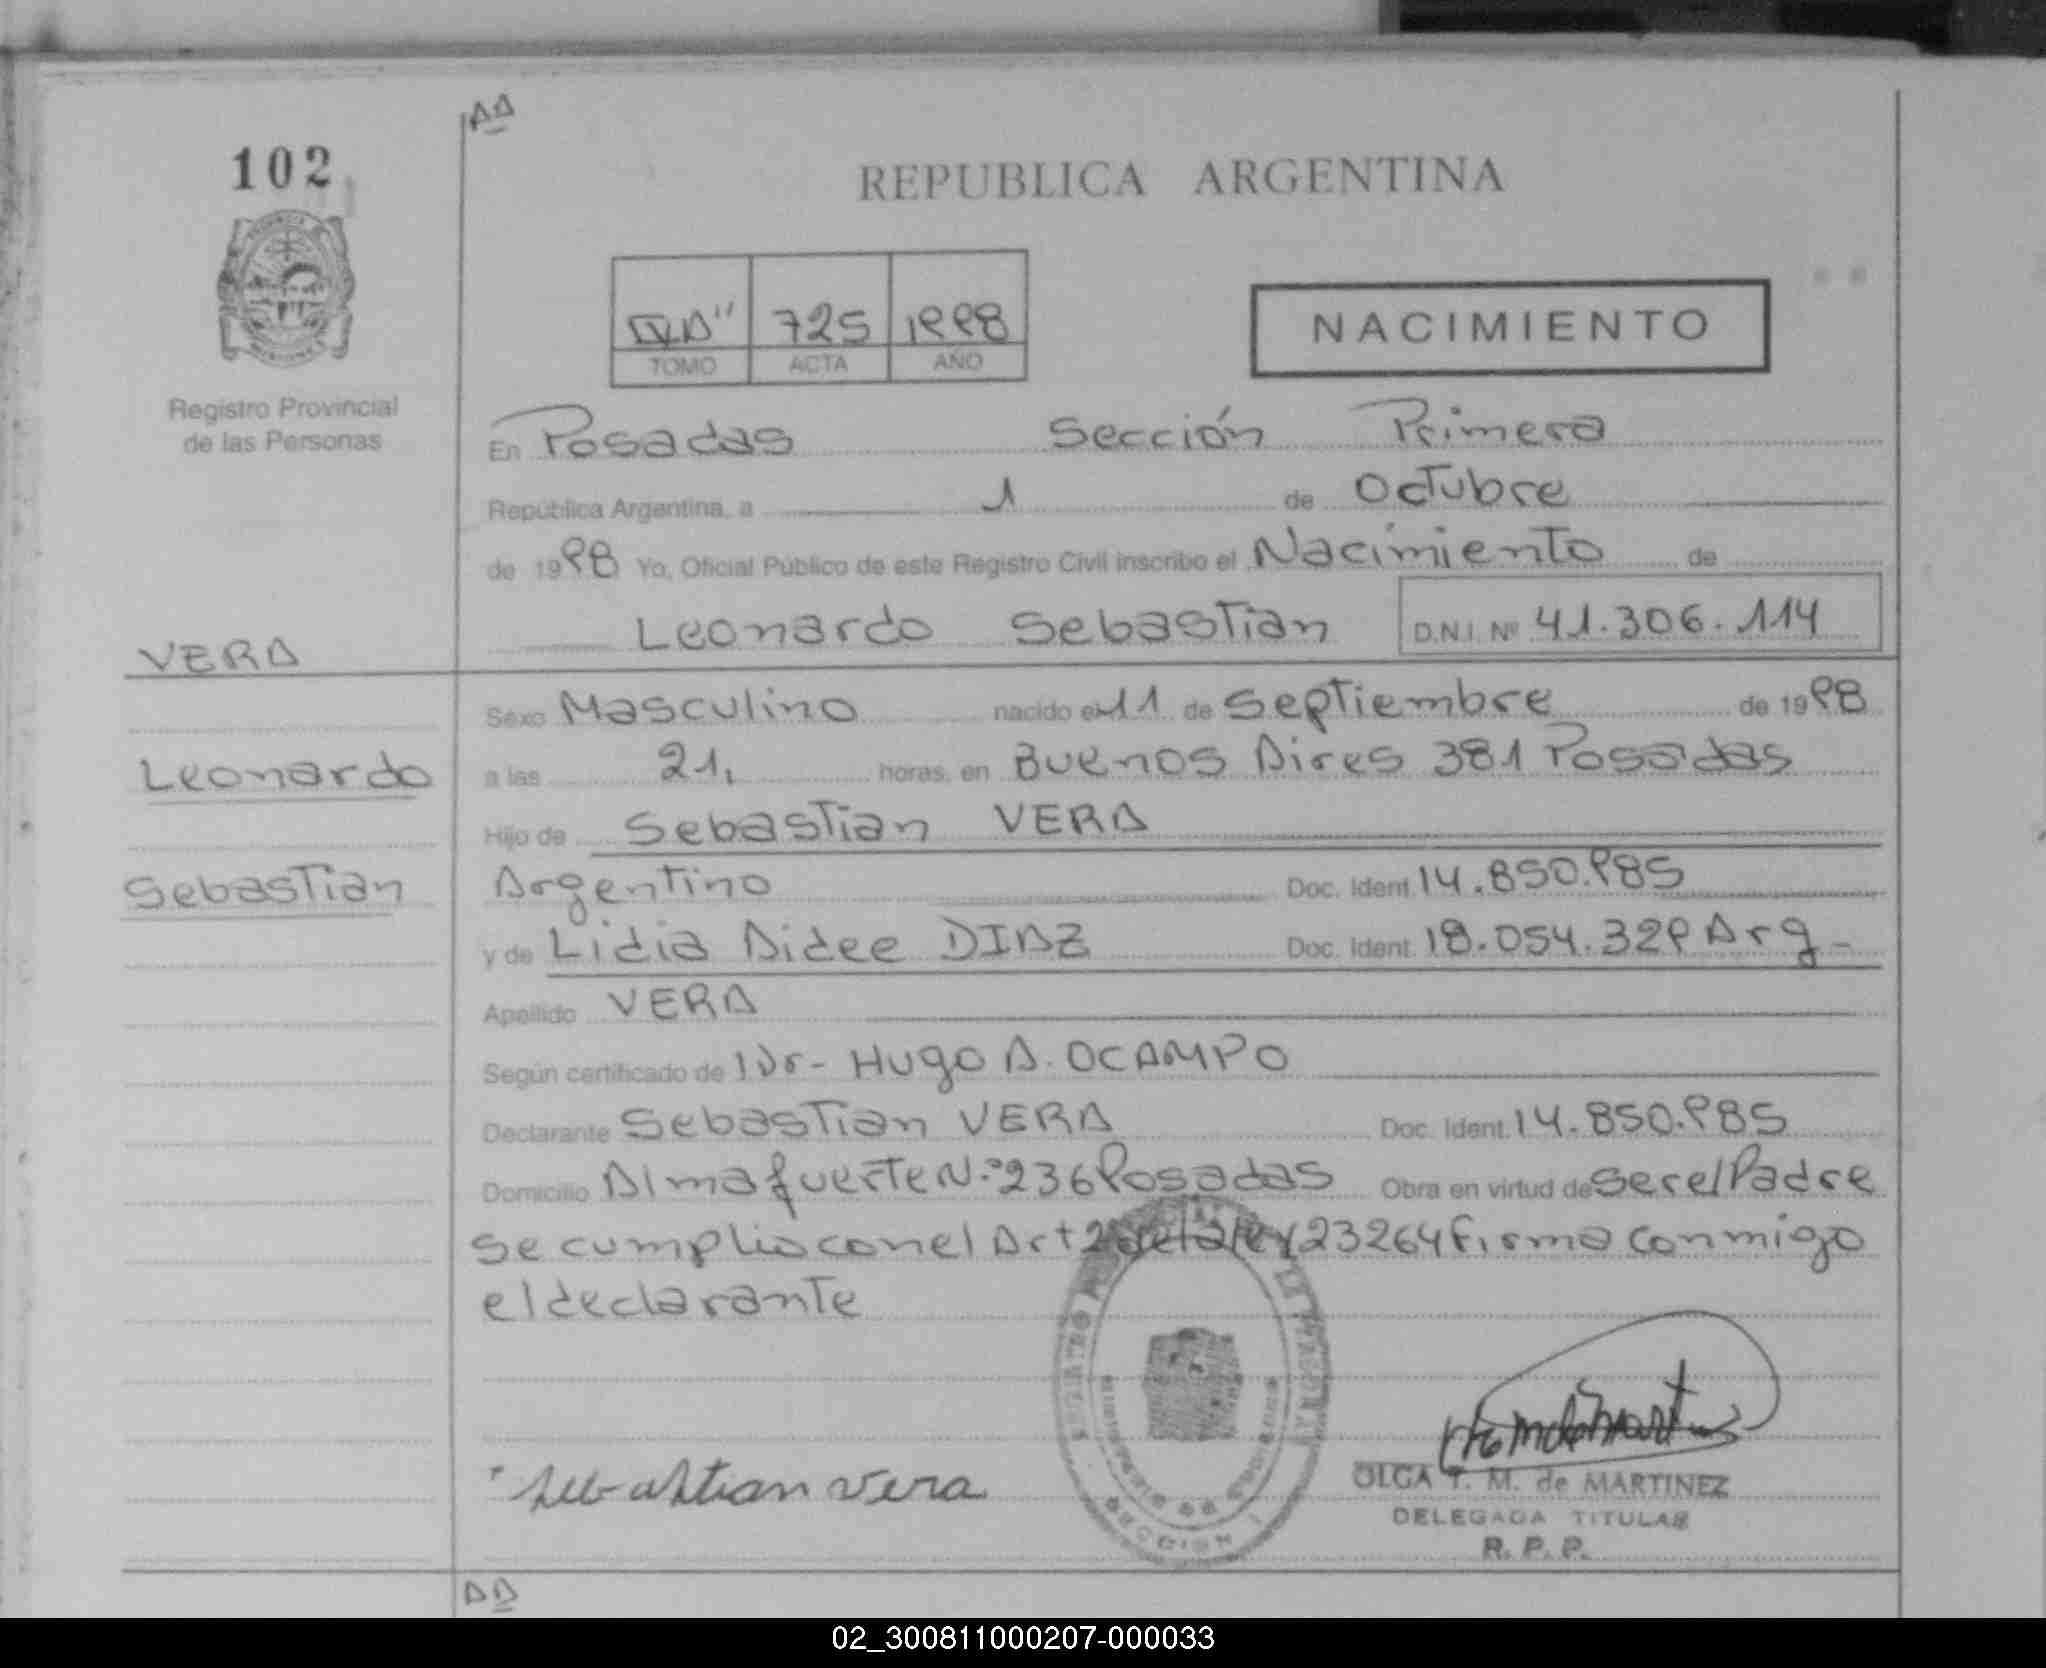 AA
102
REPUBLICA ARGENTINA
IV"A" 725 1998
TOMO ACTA AÑO
NACIMIENTO
Registro Provincial
de las Personas
En Posadas Sección Primera
República Argentina, a 1 de Octubre
de 1998 Yo, Oficial Público de este Registro Civil inscribo el Nacimiento de
Leonardo Sebastian D.N.I. Nº 41.306.114
VERA
Sexo Masculino nacido el 11 de Septiembre de 1998
Leonardo
a las 21, horas, en Buenos Aires 381 Posadas
Hijo de Sebastian VERA
Sebastian
Argentino Doc. Ident. 14.850.985
y de Lidia Aidee DIAZ Doc. Ident. 18.054.329 Arg-
Apellido VERA
Según certificado de Dr- Hugo A. OCAMPO
Declarante Sebastian VERA Doc. Ident. 14.850.985
Domicilio Almafuerte N.º 236 Posadas Obra en virtud de ser el Padre
se cumplio con el Art 2 de la ley 23264 firma conmigo
el declarante
Sebastian vera
OLGA T. M. de MARTINEZ
DELEGADA TITULAR
R. P. P.
AA
02_300811000207-000033